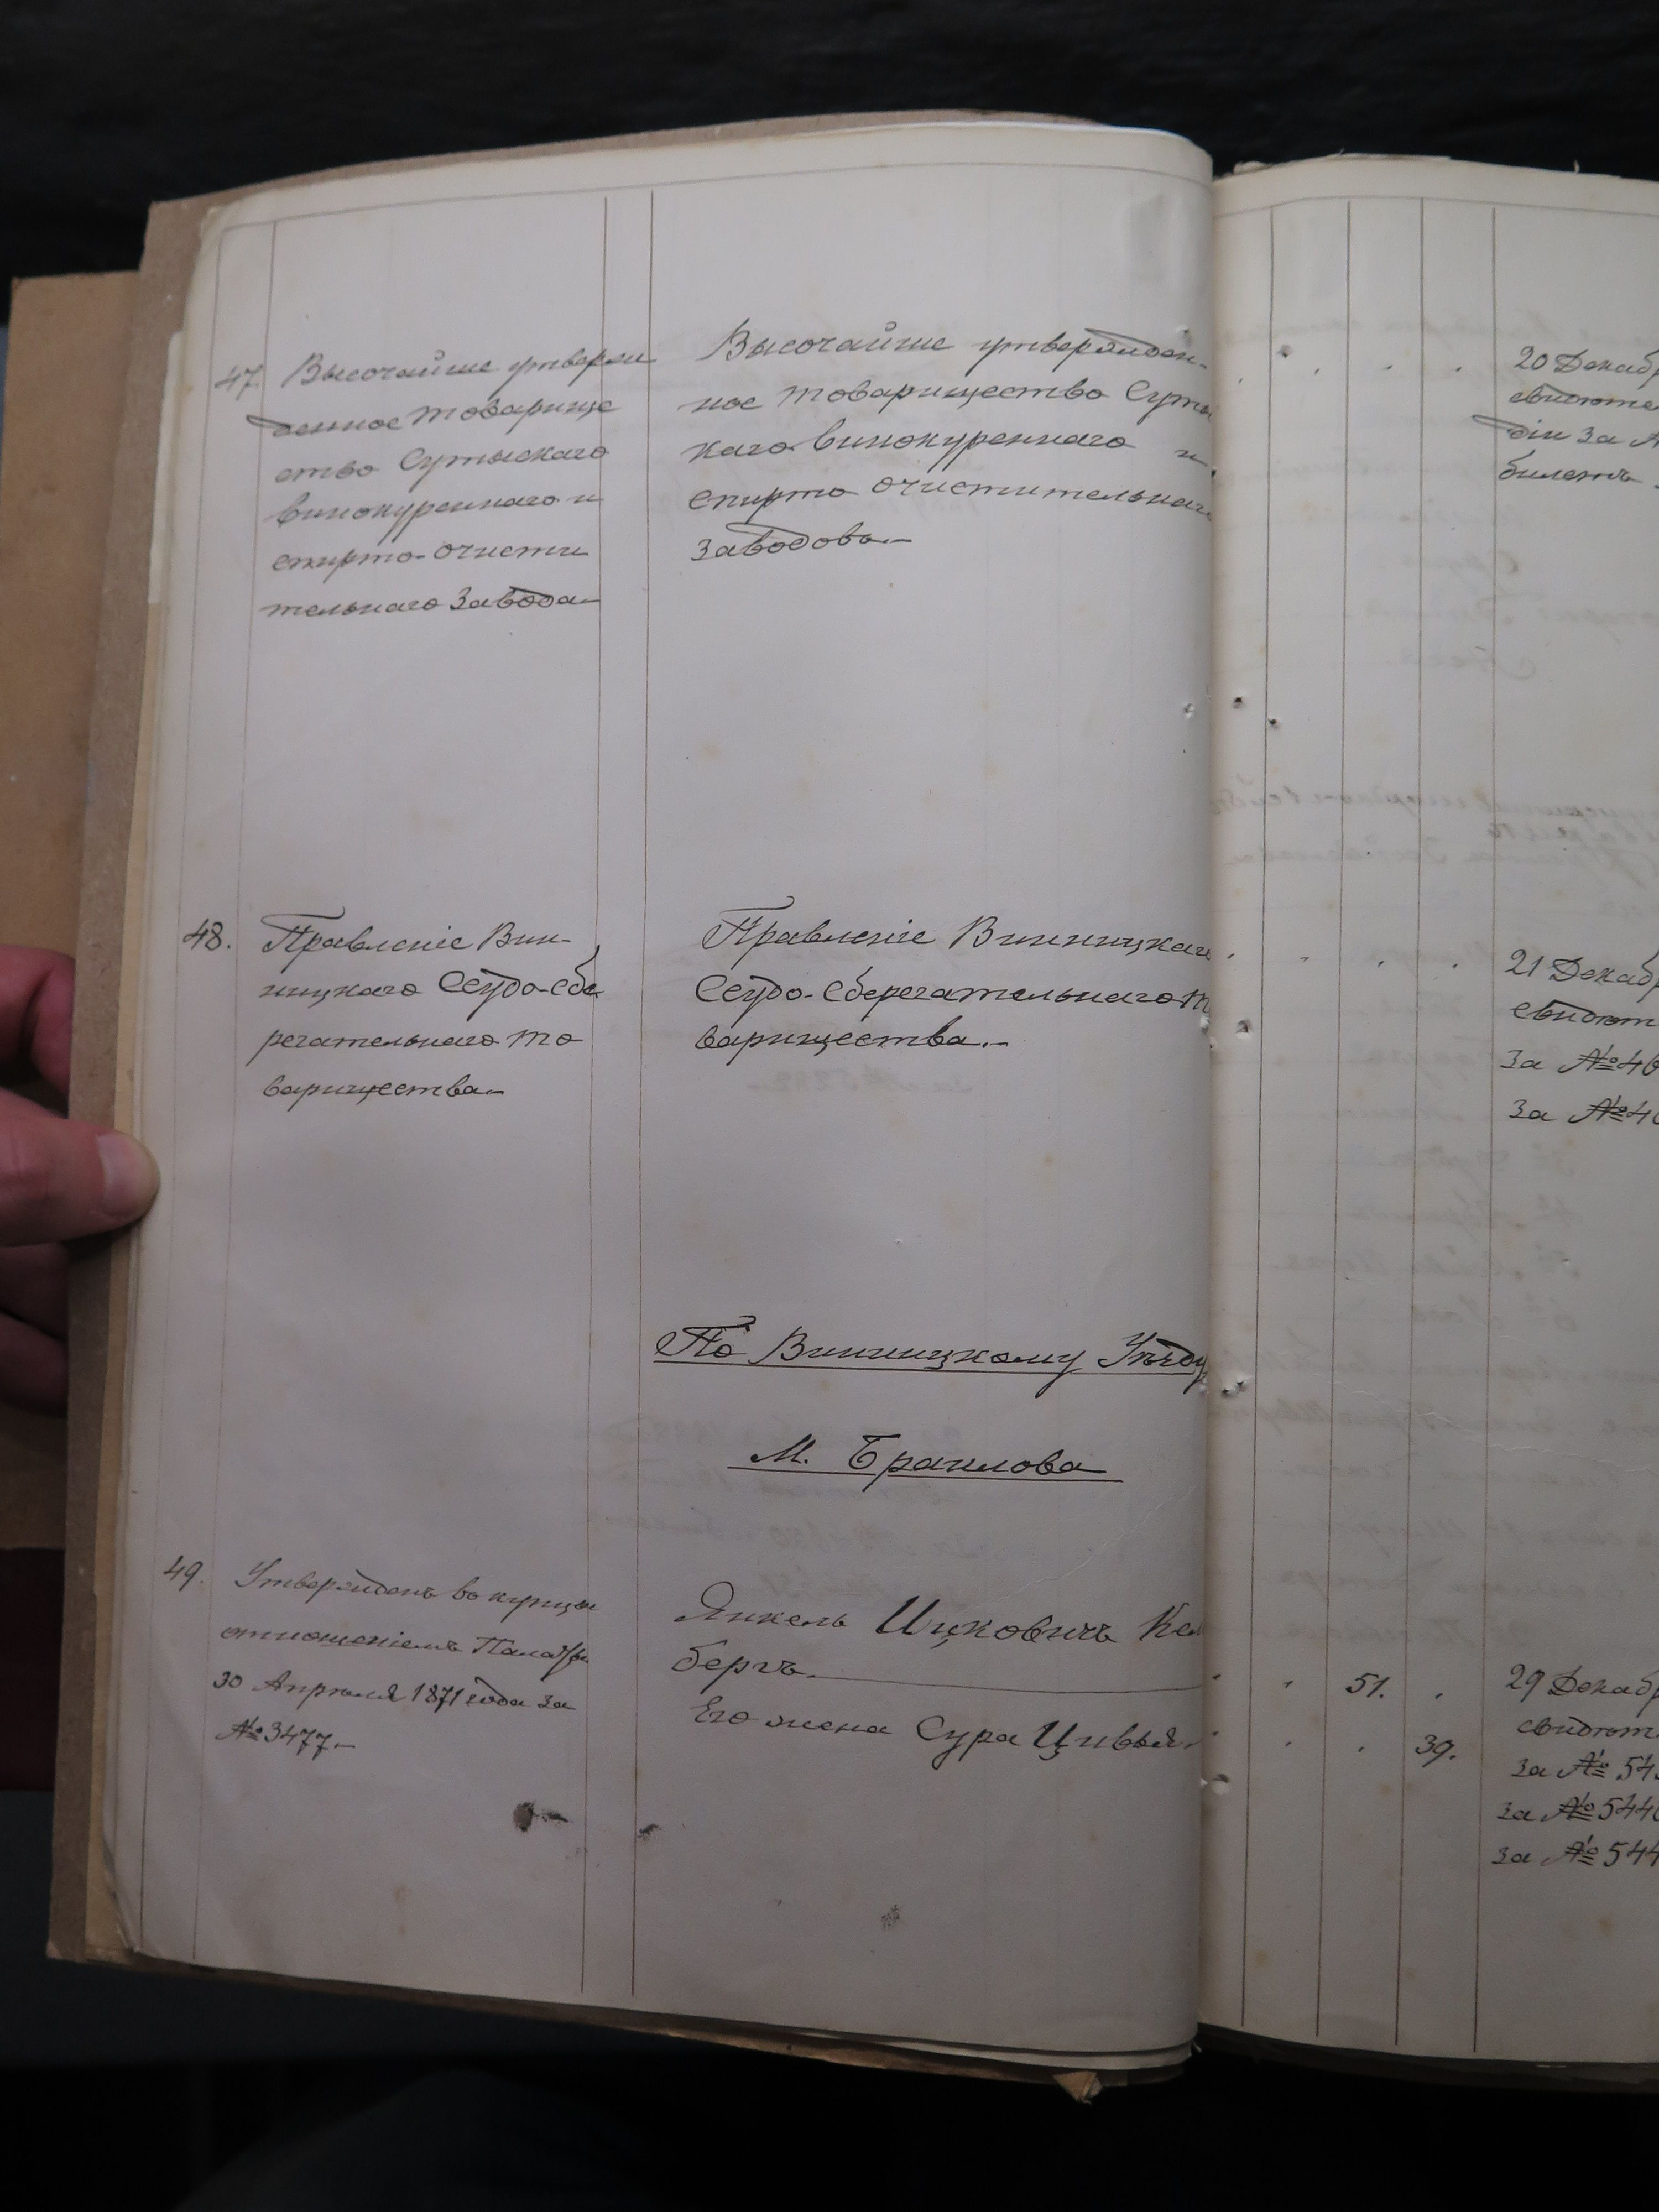 47. Высочайше утверж
денное товарище
ство Сутыскаго
винокуреннаго и
спирто-очисти
тельнаго завода
Высочайше утвержден-
ное товарищество Суты
каго винокуреннаго и
спирто очистительнаго
заводовъ.
20 Декаб
свидѣте
дiи за №
билетъ
48. Правленіе Вин-
ницкаго Ссудо-сбе
регательнаго то
варищества
Правленіе Винницкаго
Ссудо-сберегательнаго т
варищества.
21 Декаб
свидѣт
за № 46
за № 4
По Винницкому Уѣзду
М. Браилова
49. Утвержденъ въ купцы
отношеніемъ Палаты
30 Апрѣля 1871 года за
№ 3477.
Янкель Ицковичъ Кел
бергъ.
Его жена Сура Цивья.
51.
39.
29 Декаб
свидѣт
за № 54
за № 544
за № 544